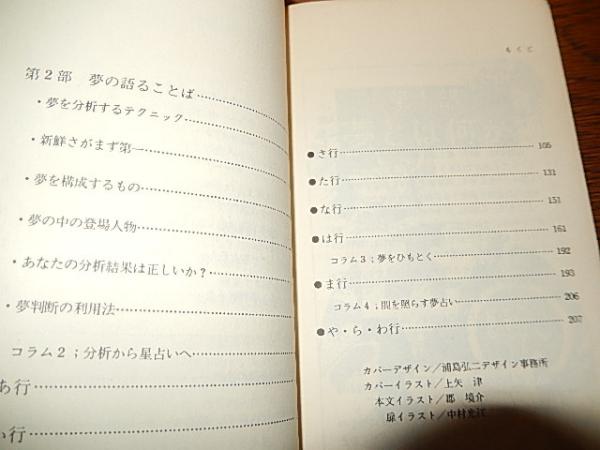 第2部 夢の語ることば
・夢を分析するテクニック
・新鮮さがまず第一
・夢を構成するもの
・夢の中の登場人物
・あなたの分析結果は正しいか?
・夢判断の利用法
コラム2;分析から星占いへ
あ行
行
もくじ
●さ行 105
●た行 131
●な行 151
●は行 161
コラム3;夢をひもとく 192
●ま行 193
コラム4;闇を照らす夢占い 206
●や・ら・わ行 207
カバーデザイン/浦島弘二デザイン事務所
カバーイラスト/上矢 津
本文イラスト/郡 境介
扉イラスト/中村光江